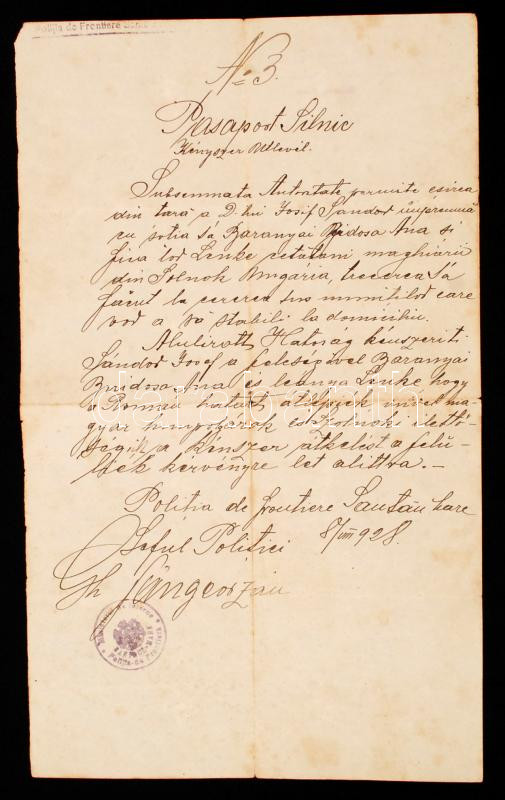 Poliția de Frontiere
No 3.
Pasaport Silnic
Kényszer Utlevél.
Subsemnata Autoritate permite esirea
din tară a D-lui Josif Sandor împreună
cu sotia sa Baranyai Ana si
fiica lor Lenke cetateni maghiari
din Solnok Ungária, trecerea sa
făcut la cererea numitilor care
vor a să stabili la domiciliu.
Alulirott Hatóság kénszeriti
Sándor Josef a feleségével Baranyai
Ana és leánya Lenke hogy
a Román határt átlépjek mivel ma
gyar honpolgárok és Szolnok illető
ségük a Kénszer átkelést a felü
kérvényre let alittva. -
Politia de frontiere Santău Mare
Seful Politiei 8/VIII 928.
Gh Sângeorzan
darabanth